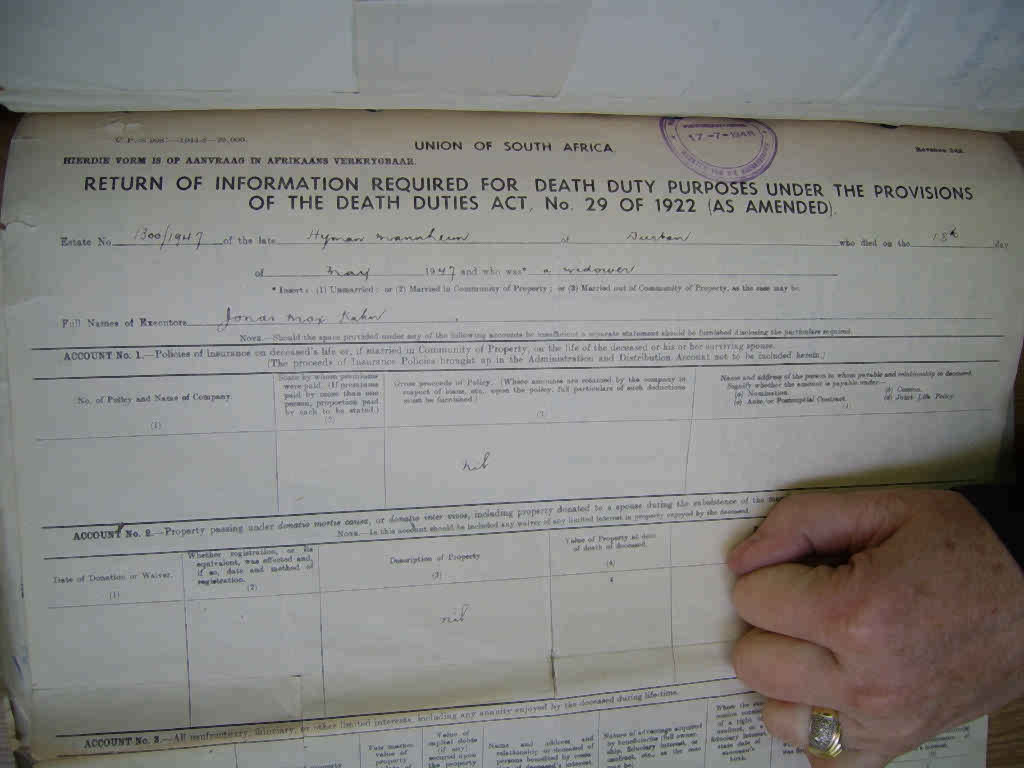 UNION OF SOUTH AFRICA.
17-7-1948
HIERDIE VORM IS OP AANVRAAG IN AFRIKAANS VERKRYGBAAR.
RETURN OF INFORMATION REQUIRED FOR DEATH DUTY PURPOSES UNDER THE PROVISIONS
OF THE DEATH DUTIES ACT, No. 29 OF 1922 (AS AMENDED).
Estate No. 1300/1947 of the late Hyman Mannheim of Durban who died on the 18th day
of May 1947 and who was* a widower
* Insert: (1) Unmarried; or (2) Married in Community of Property; or (3) Married out of Community of Property, as the case may be.
Full Names of Executors Jonas Max Kahn
NOTE.—Should the space provided under any of the following accounts be insufficient a separate statement should be furnished disclosing the particulars required.
ACCOUNT No. 1.—Policies of Insurance on deceased's life or, if married in Community of Property, on the life of the deceased or his or her surviving spouse.
(The proceeds of Insurance Policies brought up in the Administration and Distribution Account not to be included herein.)
No. of Policy and Name of Company.
(1)
State by whom premiums
were paid. (If premiums
paid by more than one
person, proportion paid
by each to be stated.)
(2)
Gross proceeds of Policy. (Where amounts are retained by the company in
respect of loans, etc., upon the policy, full particulars of such deductions
must be furnished.)
(3)
Name and address of the person to whom payable and relationship to deceased.
Signify whether the amount is payable under—
(a) Nomination. (b) Cession.
(c) Ante, or Postnuptial Contract. (d) Joint Life Policy.
nil
ACCOUNT No. 2.—Property passing under donatio mortis causa, or donatio inter vivos, including property donated to a spouse during the subsistence of the
NOTE.—In this account should be included any waiver of any limited interest in property enjoyed by the deceased.
Date of Donation or Waiver.
(1)
Whether registration, or its
equivalent, was effected and,
if so, date and method of
registration.
(2)
Description of Property
(3)
Value of Property at date
of death of deceased.
(4)
nil
ACCOUNT No. 3.—All usufructuary, fiduciary, or other limited interests, including any annuity enjoyed by the deceased during life-time.
Fair market
value of
property
Value of
capital debts
(if any)
secured upon
the property
Name and address and
relationship to deceased of
persons benefited by cesser
of deceased's interest.
Nature of advantage acquired
by beneficiaries (full owner-
ship, fiduciary interest, or